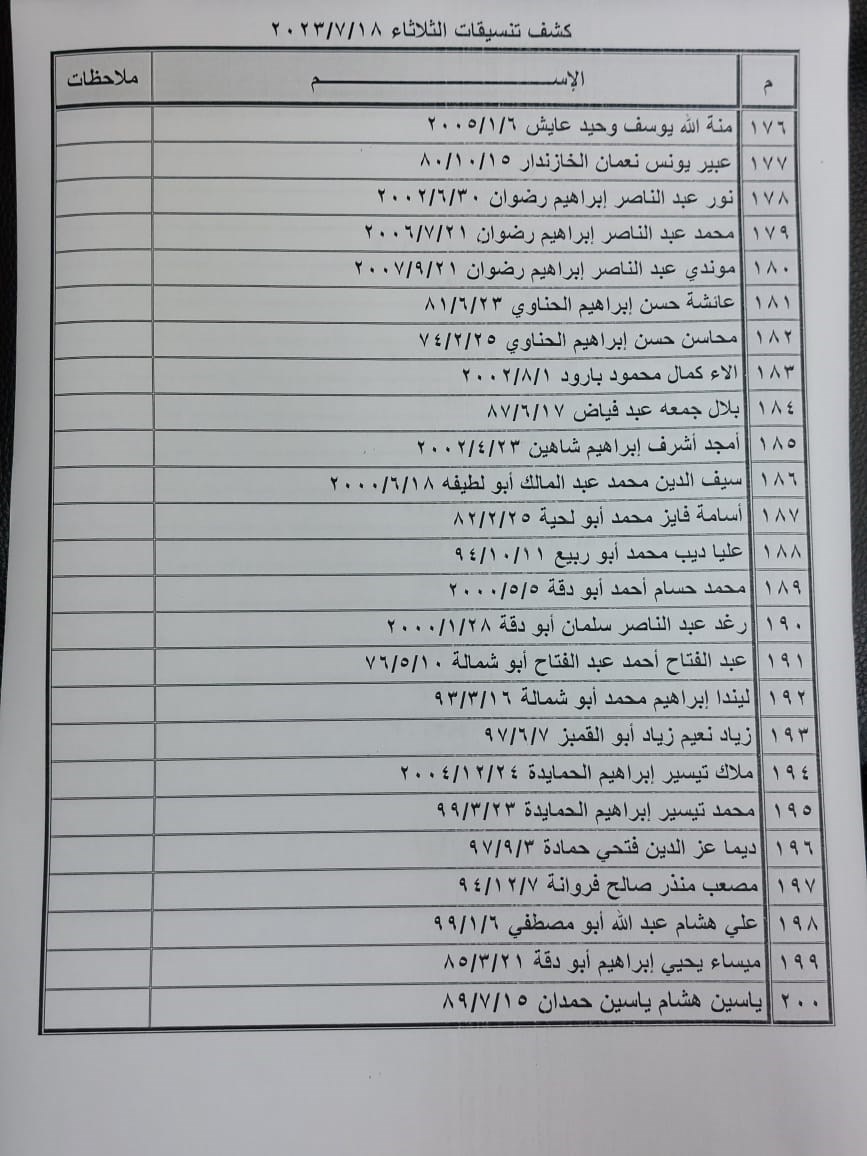 كشف تنسيقات الثلاثاء ٢٠٢٣/٧/١٨
م الإســـــــــم ملاحظات
١٧٦ منة الله يوسف وحيد عايش ٢٠٠٥/١/٦
١٧٧ عبير يونس نعمان الخازندار ٨٠/١٠/١٥
١٧٨ نور عبد الناصر إبراهيم رضوان ٢٠٠٢/٦/٣٠
١٧٩ محمد عبد الناصر إبراهيم رضوان ٢٠٠٦/٧/٢١
١٨٠ موندي عبد الناصر إبراهيم رضوان ٢٠٠٧/٩/٢١
١٨١ عائشة حسن إبراهيم الحناوي ٨١/٦/٢٣
١٨٢ محاسن حسن إبراهيم الحناوي ٧٤/٢/٢٥
١٨٣ الاء كمال محمود بارود ٢٠٠٢/٨/١
١٨٤ بلال جمعه عبد فياض ٨٧/٦/١٧
١٨٥ أمجد أشرف إبراهيم شاهين ٢٠٠٢/٤/٢٣
١٨٦ سيف الدين محمد عبد المالك أبو لطيفه ٢٠٠٠/٦/١٨
١٨٧ أسامة فايز محمد أبو لحية ٨٢/٢/٢٥
١٨٨ عليا ديب محمد أبو ربيع ٩٤/١٠/١١
١٨٩ محمد حسام أحمد أبو دقة ٢٠٠٠/٥/٥
١٩٠ رغد عبد الناصر سلمان أبو دقة ٢٠٠٠/١/٢٨
١٩١ عبد الفتاح أحمد عبد الفتاح أبو شمالة ٧٦/٥/١٠
١٩٢ ليندا إبراهيم محمد أبو شمالة ٩٣/٣/١٦
١٩٣ زياد نعيم زياد أبو القمبز ٩٧/٦/٧
١٩٤ ملاك تيسير إبراهيم الحمايدة ٢٠٠٤/١٢/٢٤
١٩٥ محمد تيسير إبراهيم الحمايدة ٩٩/٣/٢٣
١٩٦ ديما عز الدين فتحي حمادة ٩٧/٩/٣
١٩٧ مصعب منذر صالح فروانة ٩٤/١٢/٧
١٩٨ علي هشام عبد الله أبو مصطفي ٩٩/١/٦
١٩٩ ميساء يحيي إبراهيم أبو دقة ٨٥/٣/٢١
٢٠٠ ياسين هشام ياسين حمدان ٨٩/٧/١٥